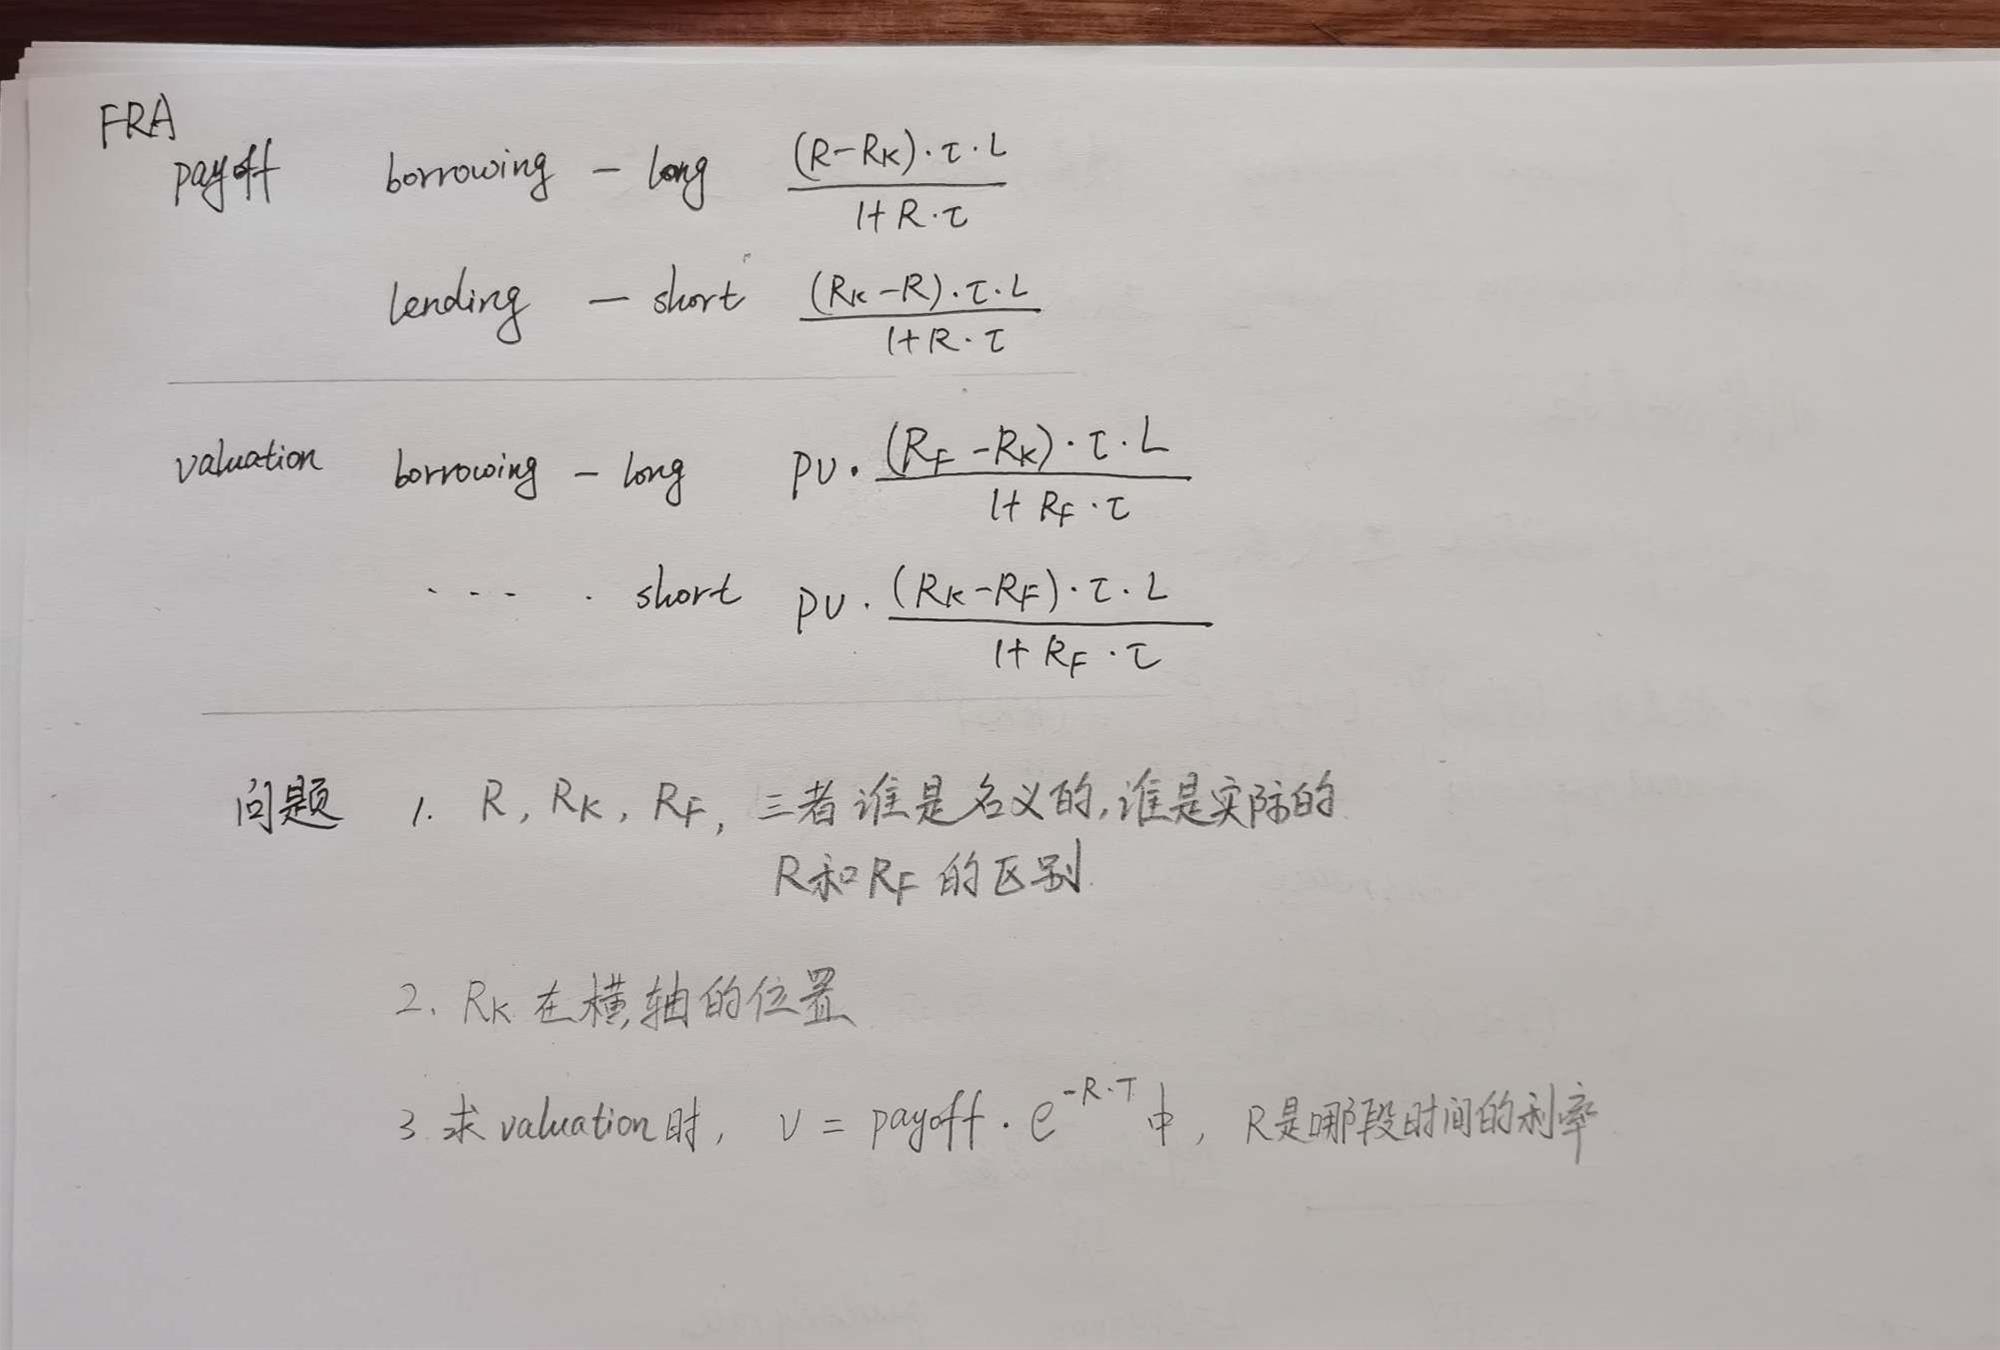 FRA
payoff borrowing — long (R-RK)·τ·L / 1+R·τ
lending — short (RK-R)·τ·L / 1+R·τ
valuation borrowing — long PV·(RF-RK)·τ·L / 1+RF·τ
---- · short PV·(RK-RF)·τ·L / 1+RF·τ
问题 1. R, RK, RF, 三者谁是名义的,谁是实际的
R和RF的区别.
2. RK在横轴的位置
3.求valuation时, V = payoff·e^-R·T 中, R是哪段时间的利率